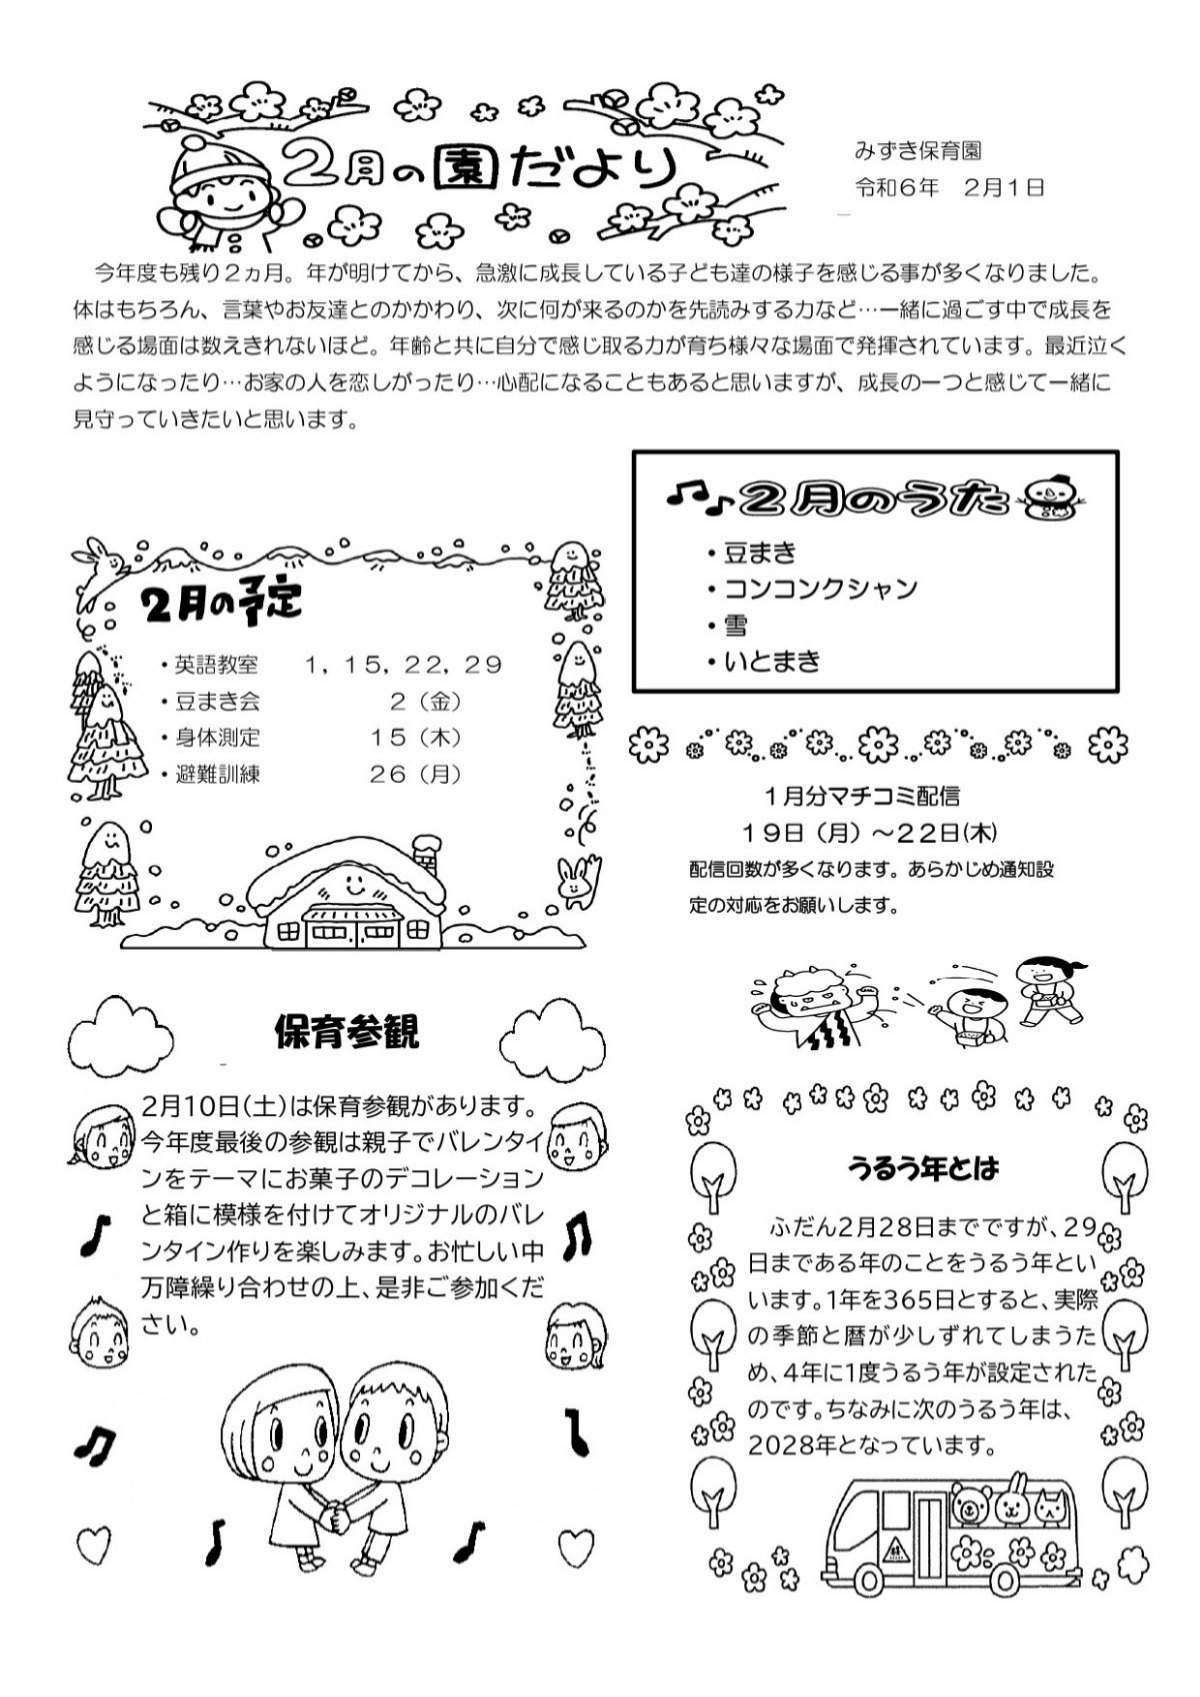 2月の園だより
みずき保育園
令和６年　２月１日
今年度も残り２ヵ月。年が明けてから、急激に成長している子ども達の様子を感じる事が多くなりました。
体はもちろん、言葉やお友達とのかかわり、次に何が来るのかを先読みする力など…一緒に過ごす中で成長を
感じる場面は数えきれないほど。年齢と共に自分で感じ取る力が育ち様々な場面で発揮されています。最近泣く
ようになったり…お家の人を恋しがったり…心配になることもあると思いますが、成長の一つと感じて一緒に
見守っていきたいと思います。
２月のうた
・豆まき
・コンコンクシャン
・雪
・いとまき
２月の予定
・英語教室　１，１５，２２，２９
・豆まき会　２（金）
・身体測定　１５（木）
・避難訓練　２６（月）
１月分マチコミ配信
１９日（月）～２２日(木)
配信回数が多くなります。あらかじめ通知設
定の対応をお願いします。
保育参観
2月10日(土)は保育参観があります。
今年度最後の参観は親子でバレンタイ
ンをテーマにお菓子のデコレーション
と箱に模様を付けてオリジナルのバレ
ンタイン作りを楽しみます。お忙しい中
万障繰り合わせの上、是非ご参加くだ
さい。
うるう年とは
ふだん2月28日までですが、29
日まである年のことをうるう年とい
います。1年を365日とすると、実際
の季節と暦が少しずれてしまうた
め、4年に1度うるう年が設定された
のです。ちなみに次のうるう年は、
2028年となっています。